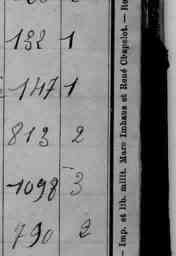 132 1
147 1
813 2
1098 3
790 2
— Imp. et lib. milit. Marc Imhaus et René Chapelot. —